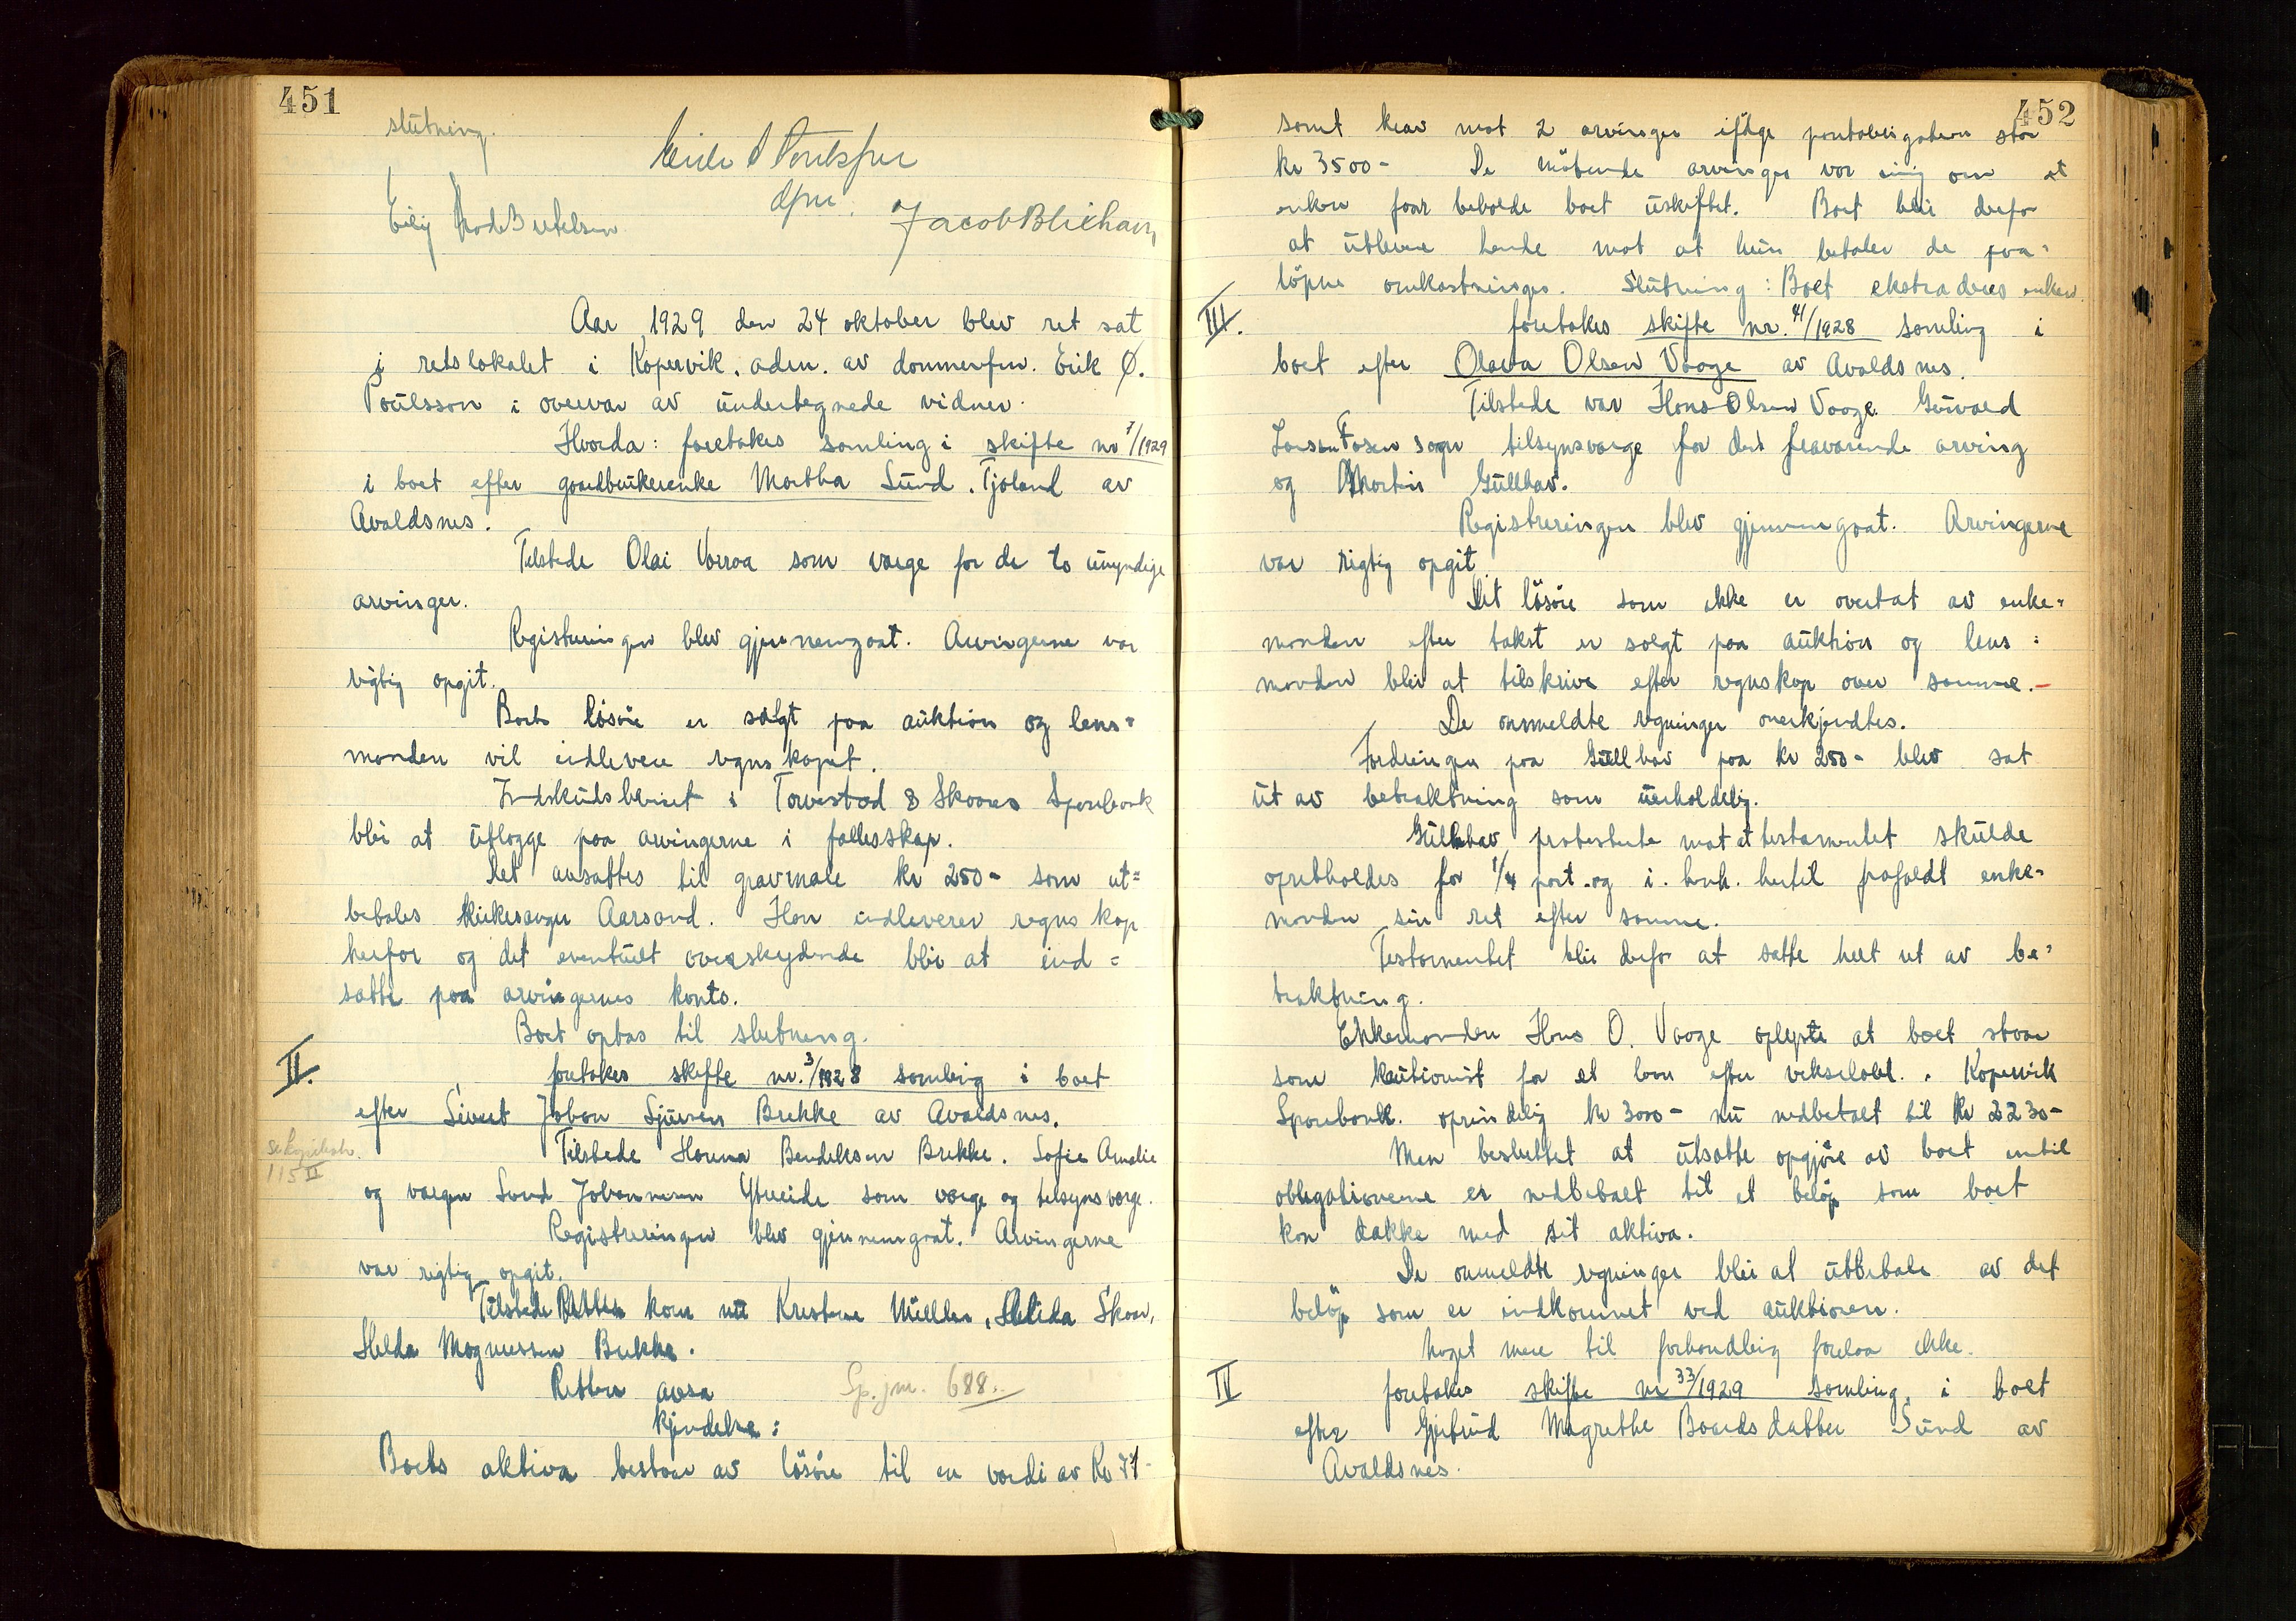 451
slutning.
dfm.
Jacob Blikhavn
Aar 1929 den 24 oktober blev ret sat
i retslokalet i Kopervik, adm. av dommerfm. Erik Ø.
Poulsson i overvær av undertegnede vidner.
Hvorda: foretokes samling i skifte nr 7/1929
i boet efter gaardbrukerenke Martha Sund, Tjøland av
Avaldsnes.
Tilstede Olai Vorraa som værge for de to umyndige
arvinger.
Registreringen blev gjennemgaat. Arvingerne var
rigtig opgit.
Boets løsøre er solgt paa auktion og lens=
manden vil indlevere regnskapet.
Indskudsbeviset i Torvestad & Skaares Sparebank
blir at utlægge paa arvingerne i fællesskap.
Det avsættes til gravmæle kr 250- som ut=
betales kirkesanger Aarsand. Han indleverer regnskap
herfor og det eventuelt overskydende blir at ind=
sætte paa arvingernes konto.
Boet optas til slutning.
II.
foretokes skifte nr. 3/1928 samling i boet
efter Sivert Johan Sjursen Brekke av Avaldsnes.
115 II
Tilstede Hanna Bendiksen Brekke, Sofie Amalie
og værgen Svend Johannesen Ytreeide som værge og tilsynsværge.
Registreringen blev gjennemgaat. Arvingerne
var rigtig opgit.
Tilstede Retten kom nu Kristine Müller, Helida Skaar,
Hilda Magnussen Brekke.
Retten avsa Sp. jnr. 688.
kjendelse:
Boets aktiva bestaar av løsøre til en værdi av Kr 77-
452
samt krav mot 2 arvinger ifølge pantobligation stor
kr 3500- De møtende arvinger var enig om at
enken faar beholde boet uskiftet. Boet blir derfor
at utlevere hende mot at hun betaler de paa=
løpne omkostninger. Slutning: Boet ekstraderes enken.
III.
foretokes skifte nr. 41/1928 samling i
boet efter Olava Olsen Vaage av Avaldsnes.
Tilstede var Hans Olsen Vaage. Gurvald
Larsen Fosen som tilsynsværge for den fraværende arving
og Martin Gullhav.
Registreringen blev gjennemgaat. Arvingerne
var rigtig opgit.
Det løsøre som ikke er overtat av enke=
manden efter takst er solgt paa auktion og lens=
manden blir at tilskrive efter regnskap over samme.-
De anmeldte regninger anerkjendtes.
Fordringen paa Gullhav paa kr 250- blev sat
ut av betraktning som uerholdelig.
Gullhav protesterte mot at testamentet skulde
opretholdes for 1/4 part og i henh. hertil frafaldt enke=
manden sin ret efter samme.
Testamentet blir derfor at sætte helt ut av be=
traktning.
Enkemanden Hans O. Vaage oplyste at boet staar
som kautionist for et laan efter vekselobl. i Kopervik
Sparebank. oprindelig kr 3000- nu nedbetalt til kr 2230-
Man besluttet at utsætte opgjøre av boet indtil
obligationerne er nedbetalt til et beløp som boet
kan dække med sit aktiva.
De anmeldte regninger blir at utbetale av det
beløp som er indkommet ved auktionen.
Noget mere til forhandling forelaa ikke.
IV
foretokes skifte nr 33/1929 samling i boet
efter Gjertrud Margrethe Baardsdatter Sund av
Avaldsnes.